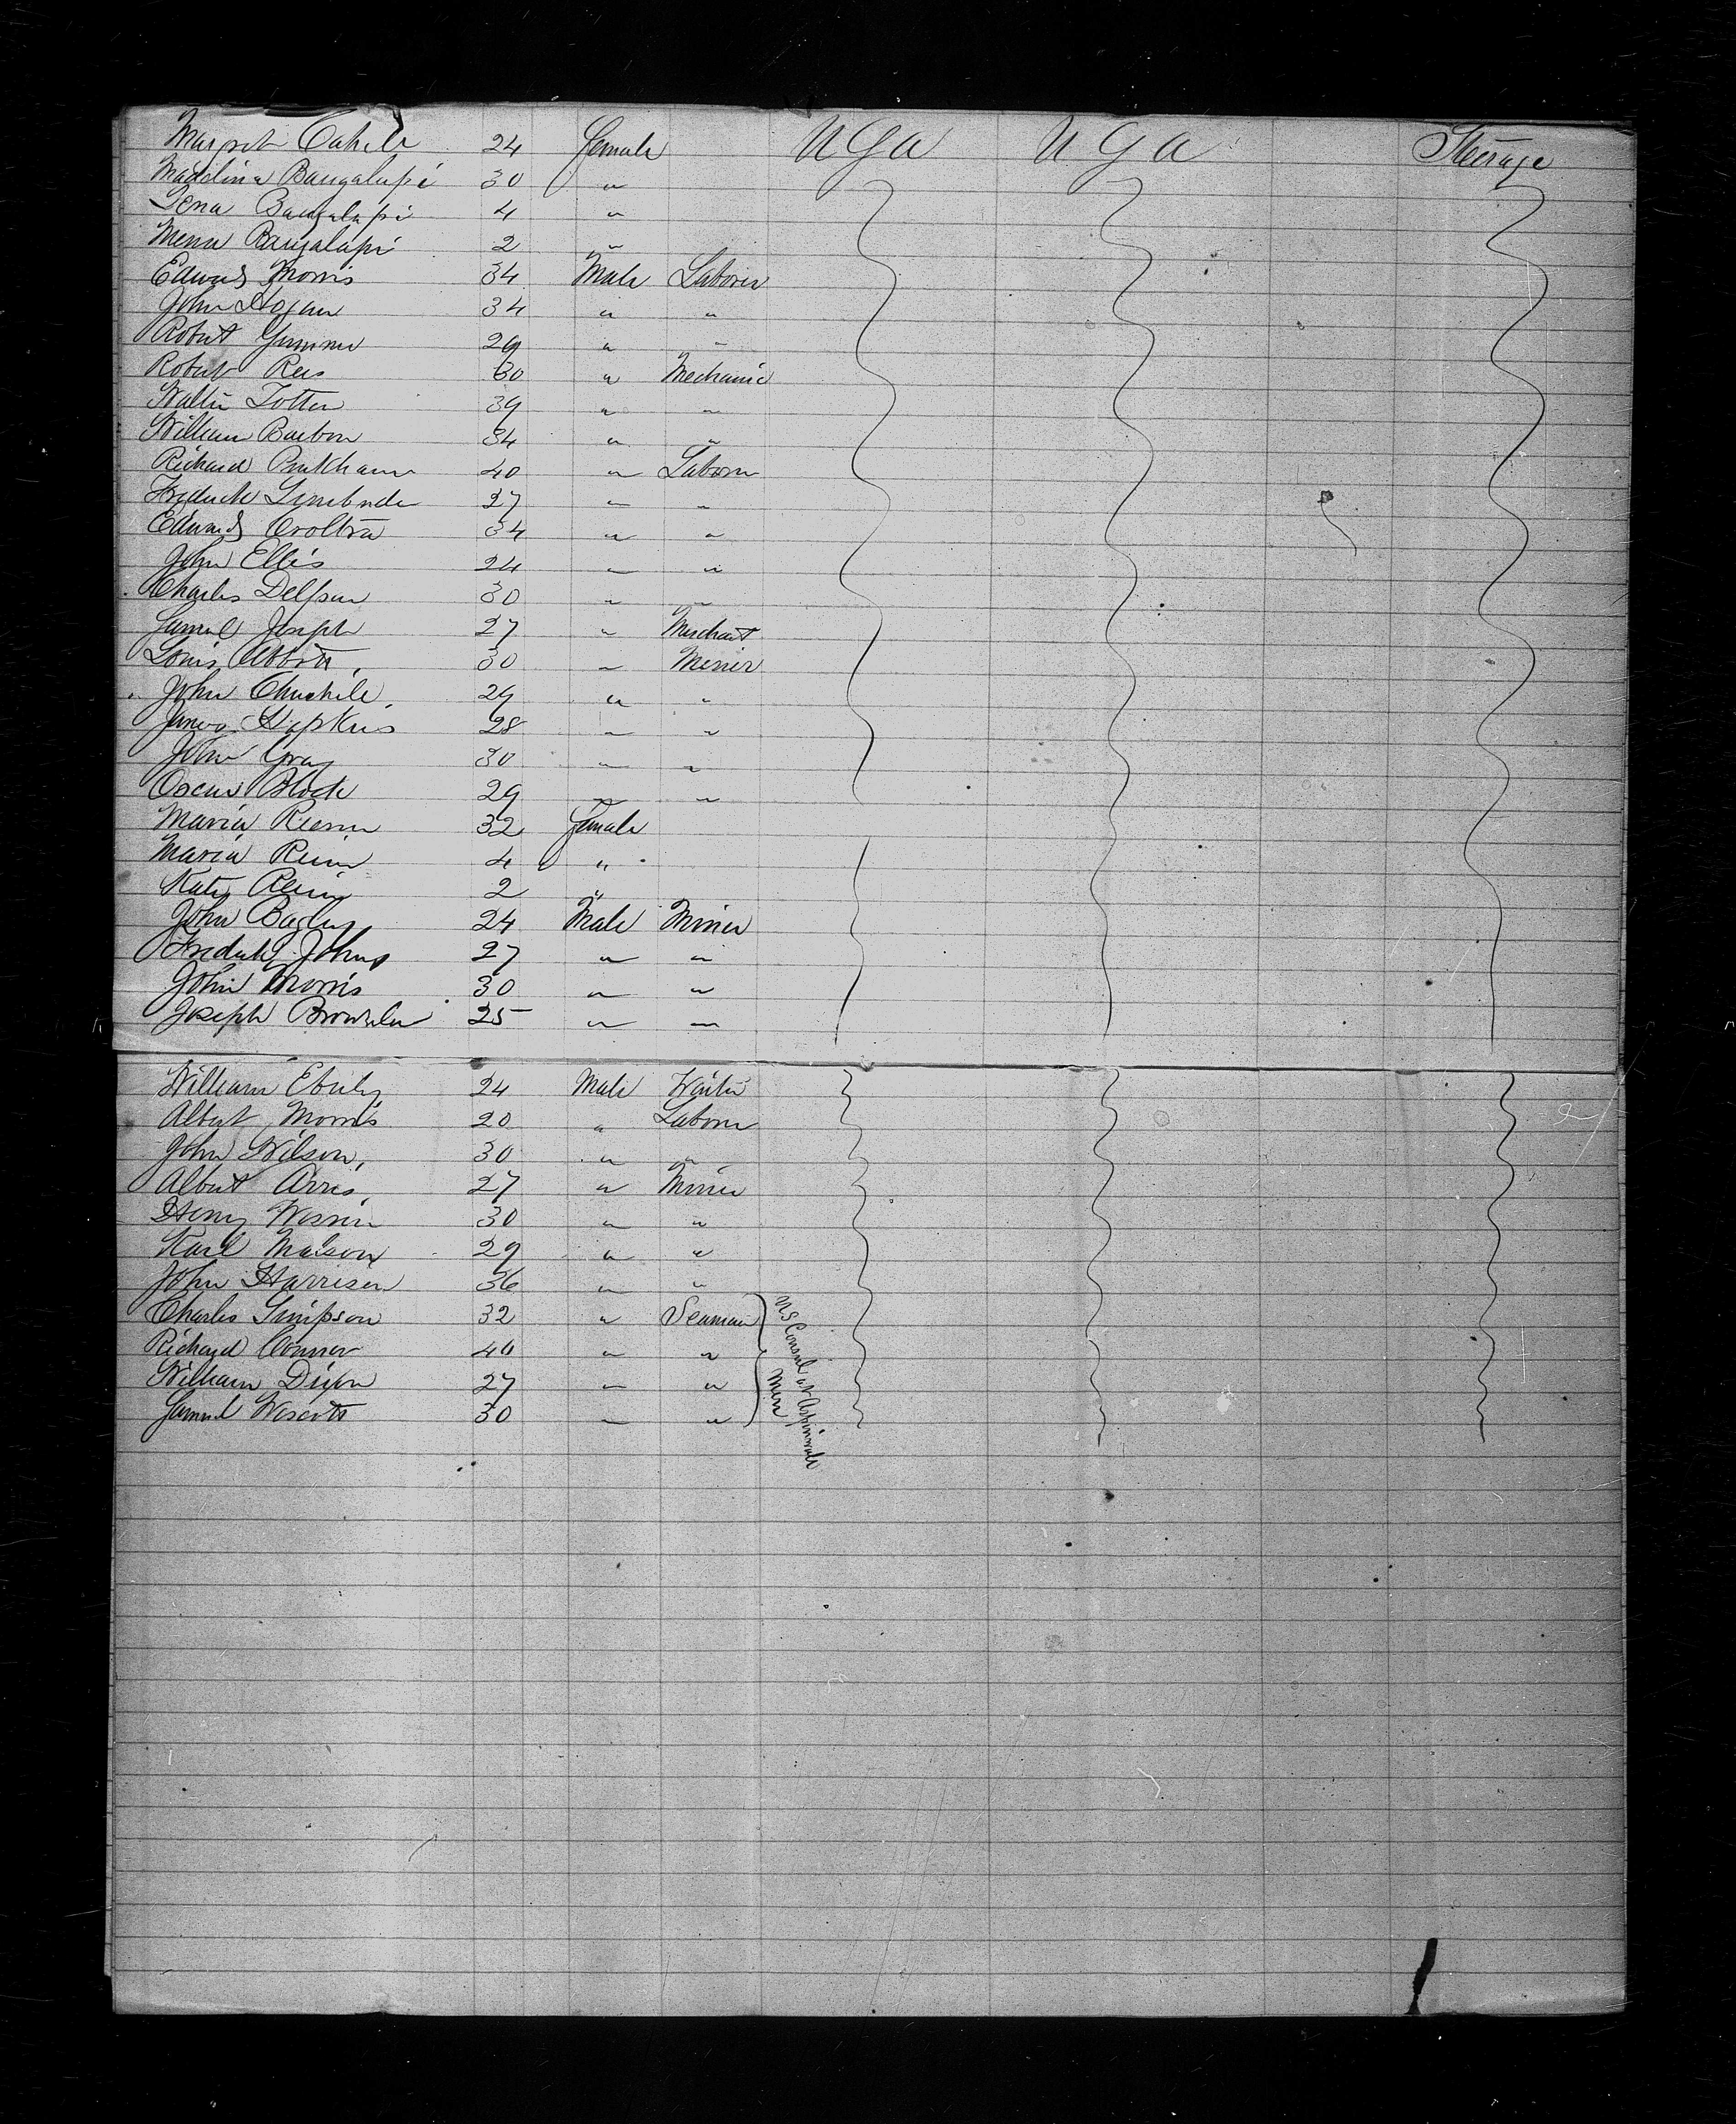 Margret Cahele 24 female U S a U S a Steerage
Madelina Bangalupi 30 "
Lena Bangalupi 4 "
Mena Bangalupi 2 "
Edward Morris 34 Male Laborer
John Hogan 34 " "
Robert 29 " "
Robert Rees 30 " Mechanic
Walter Totten 39 " "
William Barbon 34 " "
Richard 40 " Laborer
Fredrick 27 " "
Edward 34 " "
John Ellis 24 " "
Charles 30 " "
Samuel Joseph 27 " Merchant
Louis Abbott 30 " Miner
John Churchile 29 " "
James Hopkins 28 " "
John Gray 30 " "
Oscar Block 29 " "
Maria 32 female
Maria 4 "
Katy 2 "
John Bagley 24 Male Miner
Fredrick Johns 27 " "
John Morris 30 " "
Joseph 25 " "
William 24 Male Waiter
Albert Morris 20 " Laborer
John Wilson 30 " "
Albert 27 " Miner
Henry 30 " "
Karl Malson 29 " "
John Harrison 36 " "
Charles Simpson 32 " Seaman U S Consul at Aspinwall
Richard Connor 40 " " Men
William Dixon 27 " "
Samuel Wescott 30 " "